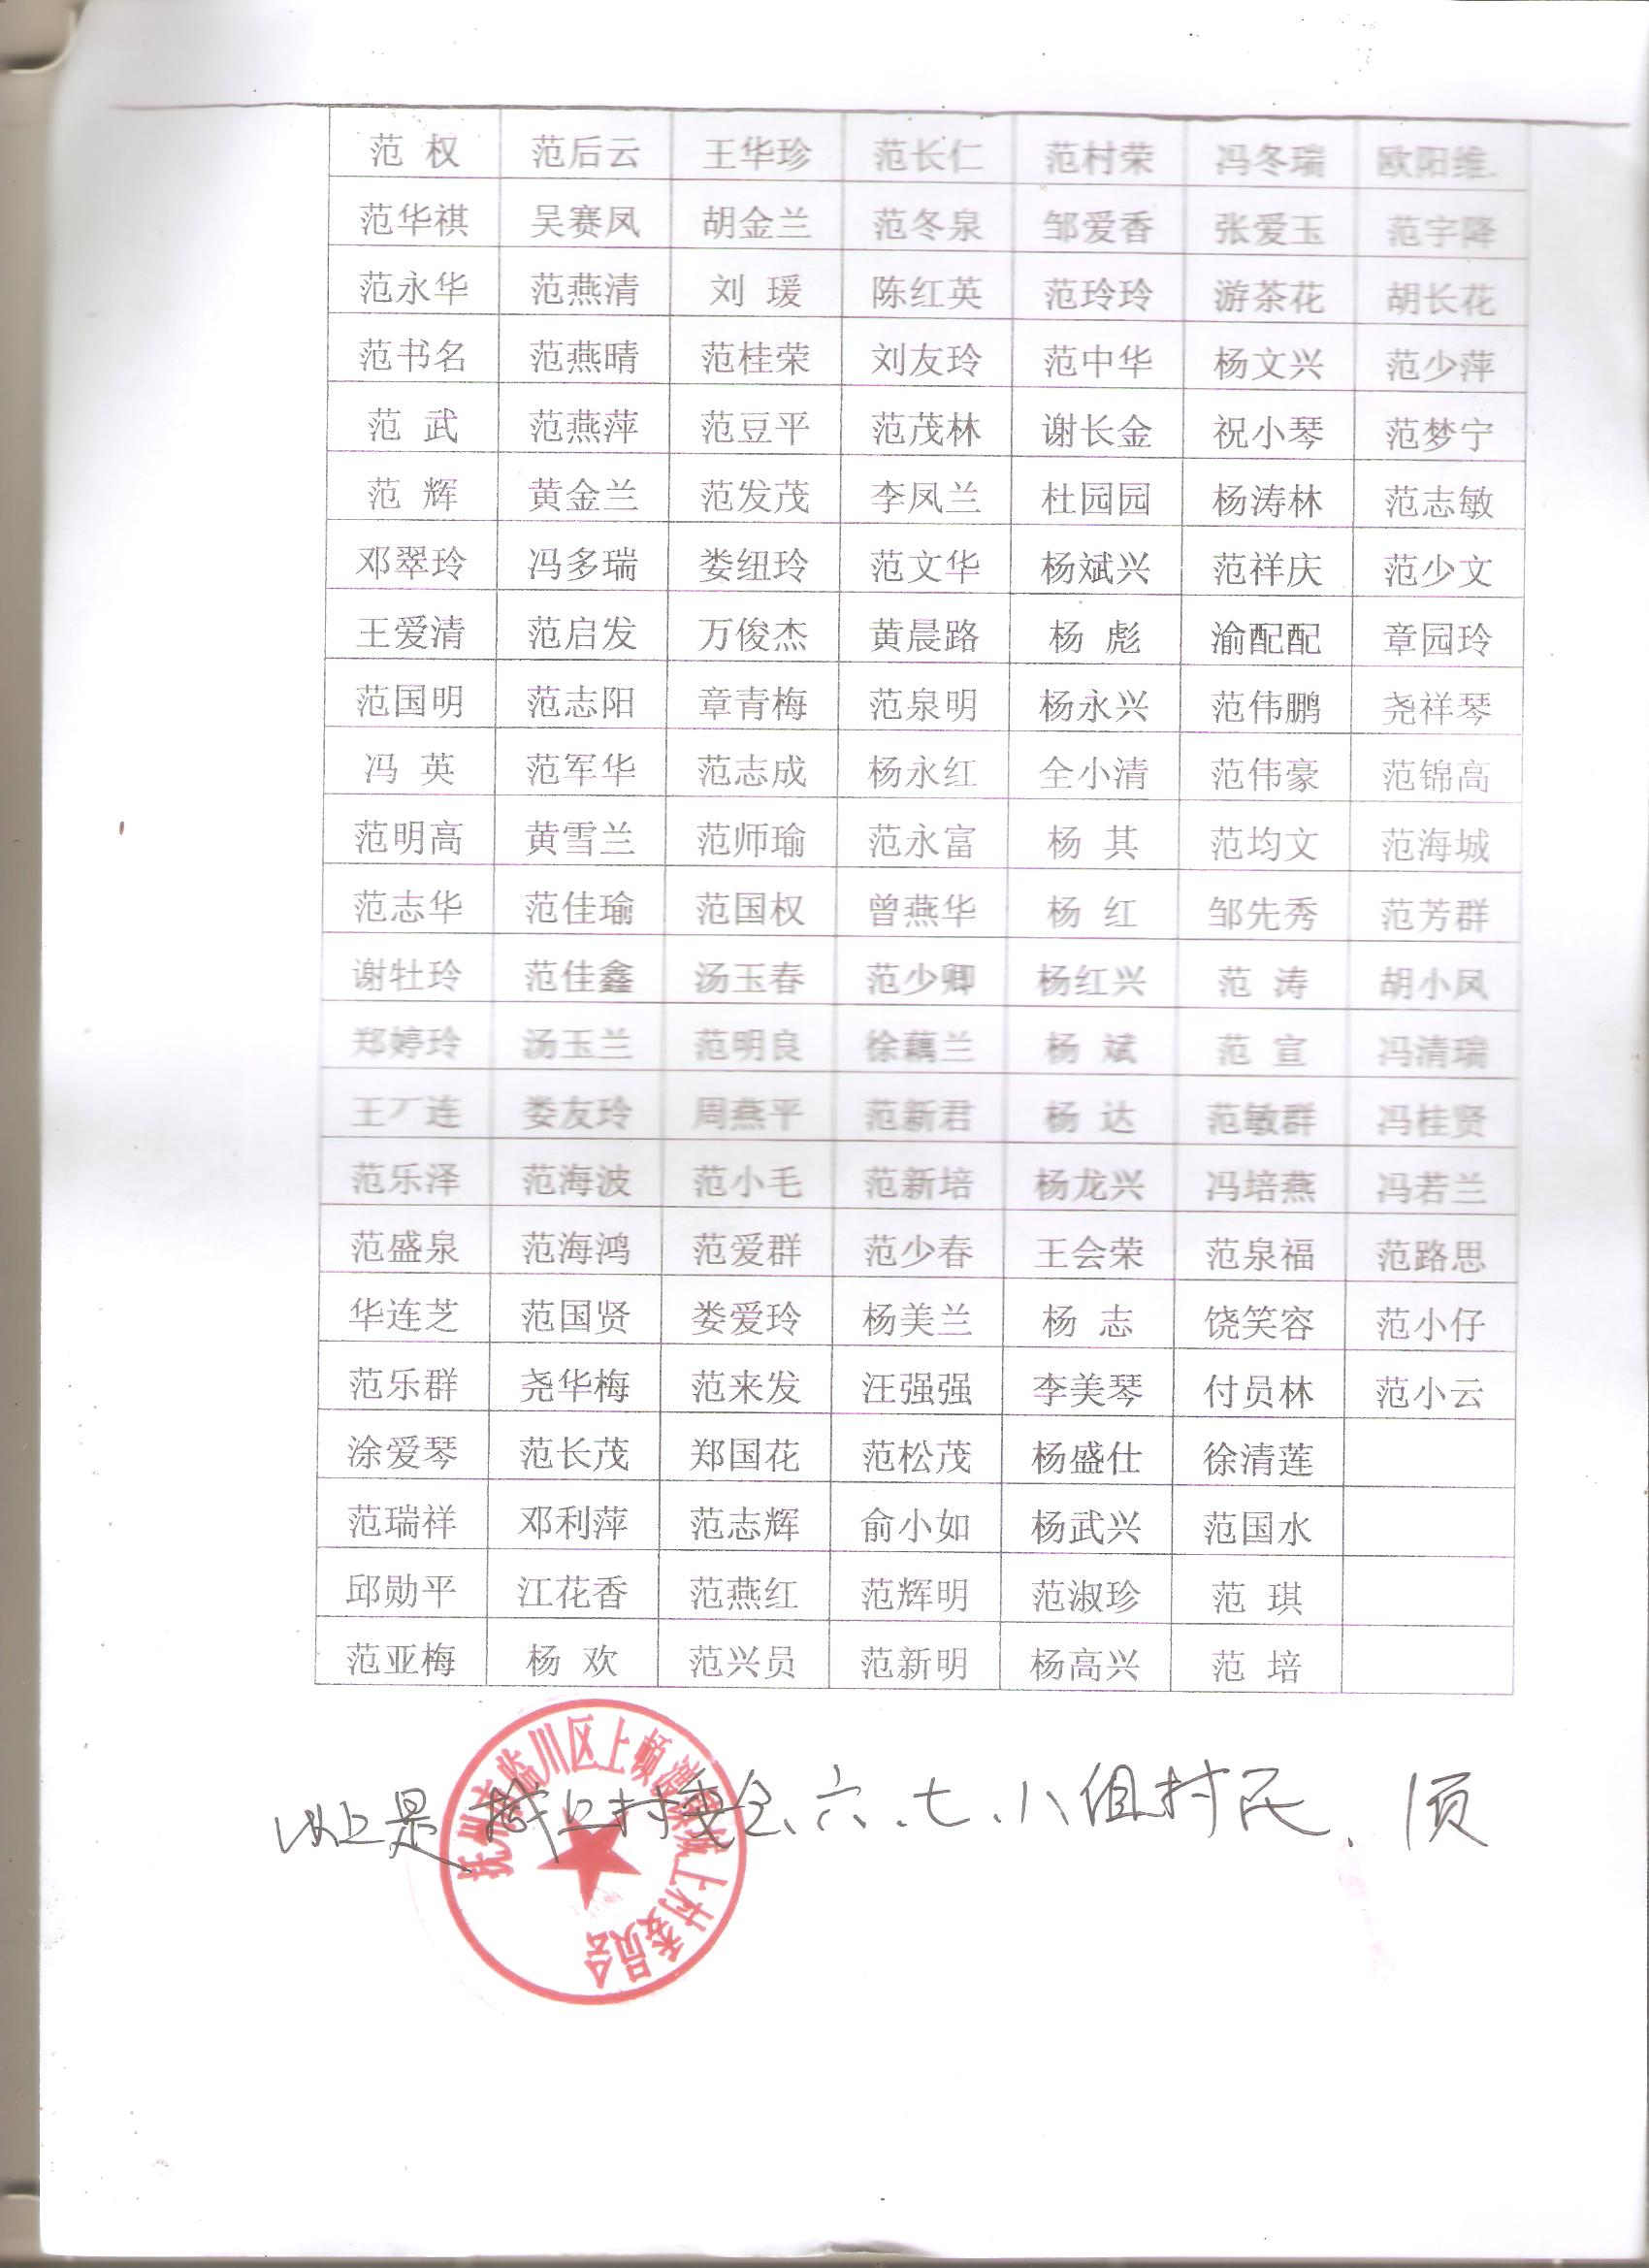 范 权 范后云 王华珍 范长仁 范村荣 冯冬瑞 欧阳维.
范华祺 吴赛凤 胡金兰 范冬泉 邹爱香 张爱玉 范宇降
范永华 范燕清 刘 瑗 陈红英 范玲玲 游茶花 胡长花
范书名 范燕晴 范桂荣 刘友玲 范中华 杨文兴 范少萍
范 武 范燕萍 范豆平 范茂林 谢长金 祝小琴 范梦宁
范 辉 黄金兰 范发茂 李凤兰 杜园园 杨涛林 范志敏
邓翠玲 冯多瑞 娄纽玲 范文华 杨斌兴 范祥庆 范少文
王爱清 范启发 万俊杰 黄晨路 杨 彪 渝配配 章园玲
范国明 范志阳 章青梅 范泉明 杨永兴 范伟鹏 尧祥琴
冯 英 范军华 范志成 杨永红 全小清 范伟豪 范锦高
范明高 黄雪兰 范师瑜 范永富 杨 其 范均文 范海城
范志华 范佳瑜 范国权 曾燕华 杨 红 邹先秀 范芳群
谢牡玲 范佳鑫 汤玉春 范少卿 杨红兴 范 涛 胡小凤
郑婷玲 汤玉兰 范明良 徐藕兰 杨 斌 范 宣 冯清瑞
王厂连 娄友玲 周燕平 范新君 杨 达 范敏群 冯桂贤
范乐泽 范海波 范小毛 范新培 杨龙兴 冯培燕 冯若兰
范盛泉 范海鸿 范爱群 范少春 王会荣 范泉福 范路思
华连芝 范国贤 娄爱玲 杨美兰 杨 志 饶笑容 范小仔
范乐群 尧华梅 范来发 汪强强 李美琴 付员林 范小云
涂爱琴 范长茂 郑国花 范松茂 杨盛仕 徐清莲
范瑞祥 邓利萍 范志辉 俞小如 杨武兴 范国水
邱勋平 江花香 范燕红 范辉明 范淑珍 范 琪
范亚梅 杨 欢 范兴员 范新明 杨高兴 范 培
以上是 上村委会、六、七、八组村民. 1页
抚州市临川区上顿渡镇 上村委员会